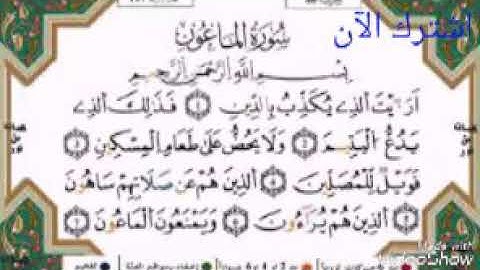 اشترك الآن
سُورَةُ الْمَاعُونِ
بِسْمِ اللَّهِ الرَّحْمَٰنِ الرَّحِيمِ
أَرَٰيْتَ الَّذِي يُكَذِّبُ بِالدِّينِ ١ فَذَٰلِكَ الَّذِي
يَدُعُّ الْيَتِيمَ ٢ وَلَا يَحُضُّ عَلَىٰ طَعَامِ الْمِسْكِينِ ٣
فَوَيْلٌ لِّلْمُصَلِّينَ ٤ الَّذِينَ هُمْ عَن صَلَاتِهِمْ سَاهُونَ
الَّذِينَ هُمْ يُرَآءُونَ ٥ وَيَمْنَعُونَ الْمَاعُونَ ٦
Made with
VideoShow